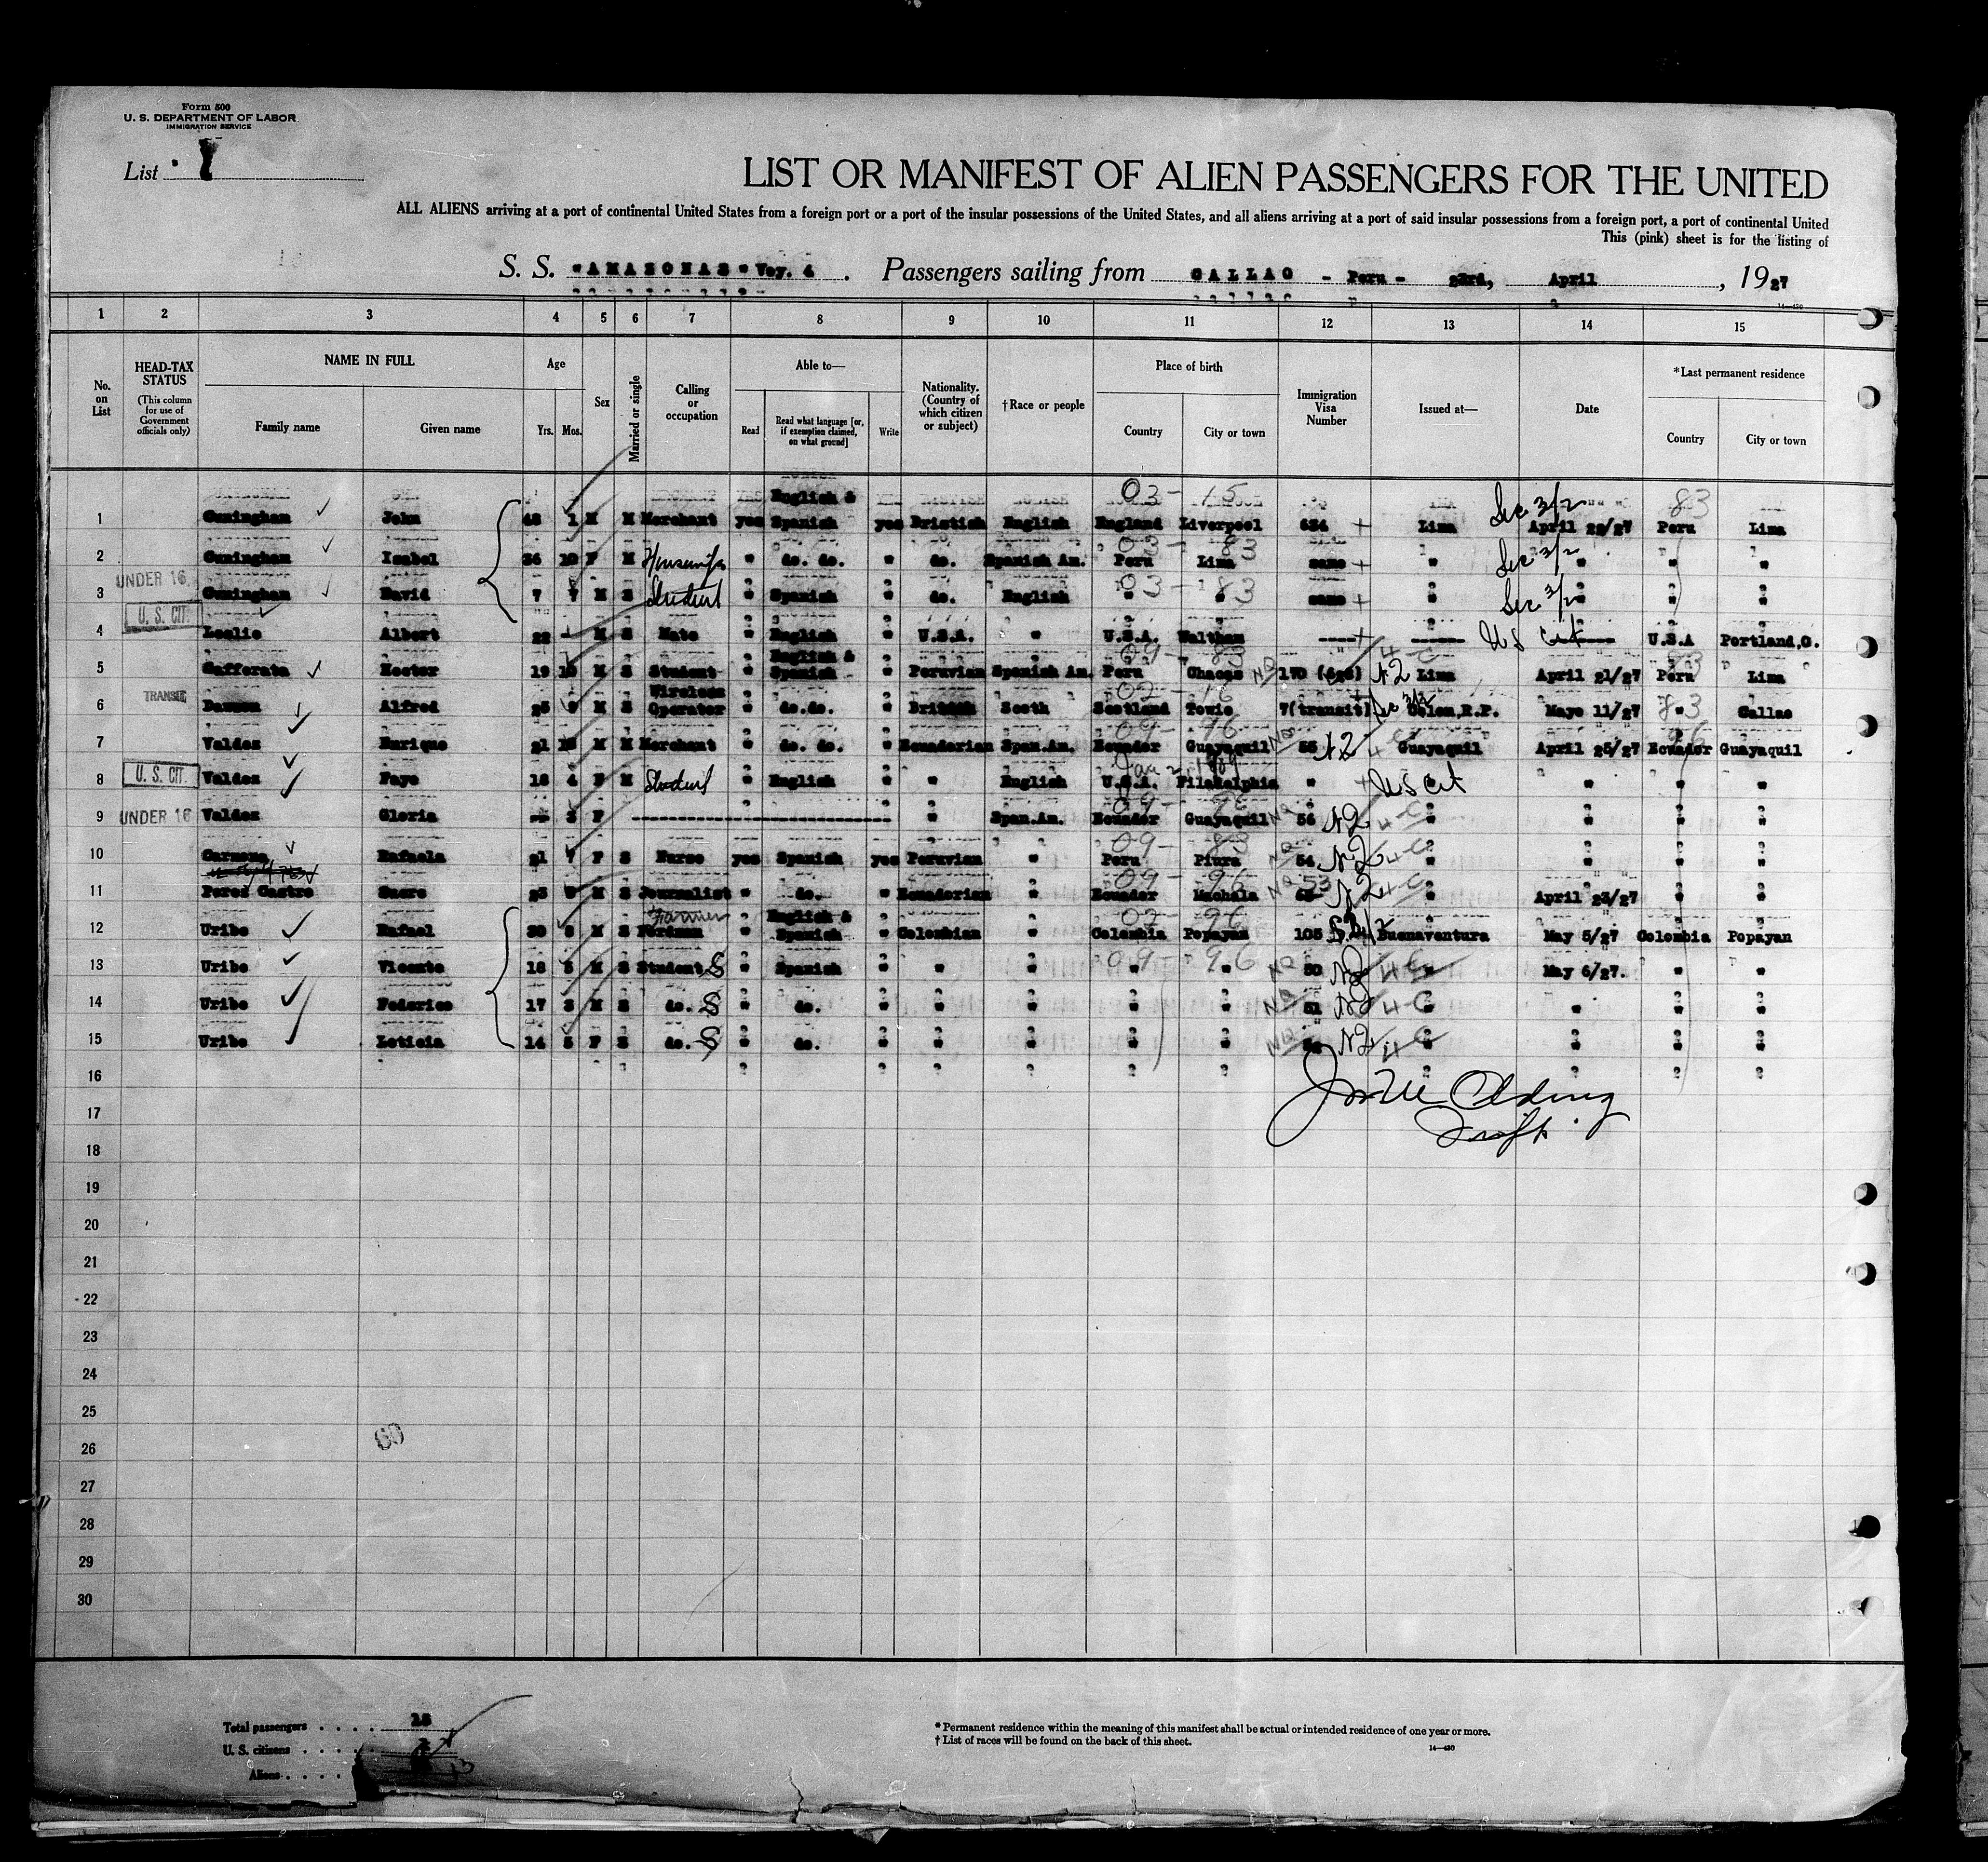 Form 500
U. S. DEPARTMENT OF LABOR
IMMIGRATION SERVICE
List
LIST OR MANIFEST OF ALIEN PASSENGERS FOR THE UNITED
ALL ALIENS arriving at a port of continental United States from a foreign port or a port of the insular possessions of the United States, and all aliens arriving at a port of said insular possessions from a foreign port, a port of continental United
This (pink) sheet is for the listing of
S. S. "AMASONAS" Voy. 4 . Passengers sailing from CALLAO - Peru - 23rd, April , 1927
1 2 3 4 5 6 7 8 9 10 11 12 13 14 15
No. on List
HEAD-TAX STATUS
(This column for use of Government officials only)
NAME IN FULL
Family name Given name
Age
Yrs. Mos.
Sex
Married or single
Calling or occupation
Able to—
Read
Read what language [or, if exemption claimed, on what ground]
Write
Nationality. (Country of which citizen or subject)
†Race or people
Place of birth
Country City or town
Immigration Visa Number
Issued at—
Date
*Last permanent residence
Country City or town
03 - 15 83
1 Cuningham John 48 1 M M Merchant yes English & Spanish yes Bristish English England Liverpool 634 Lima Sec 3/2 April 22/27 Peru Lima
03 - 83
2 Cuningham Isabel 36 10 F M Housewife " do. do. " do. Spanish Am. Peru Lima same " Sec 3/2 " " "
UNDER 16 03 - 83
3 Cuningham David 7 7 M S Student " Spanish " do. English " " same " Sec 3/2 " " "
U. S. CIT.
4 Leslie Albert 22 - M S Mate " English " U.S.A. " U.S.A. Waltham ---- ----- U S Cit ---- U.S.A Portland,O.
09 - 83
5 Cafferata Hector 19 10 M S Student " English & Spanish " Peruvian Spanish Am. Peru Chacas NQ 170 N2 4-C Lima April 21/27 Peru Lima
TRANSIT 02 - 16
6 Alfred 25 M S Wireless Operator " do.do. " British Scoth Scotland Towie 7(transit) Sec 3/3 Colon,R.P. Mayo 11/27 83 " Callao
09 - 96
7 Valdez Enrique 21 M M Merchant " do. do. " Ecuadorian Span.Am. Ecuador Guayaquil NQ 55 N2 4-C Guayaquil April 25/27 Ecuador Guayaquil
U. S. CIT. Jan 2, 1909
8 Valdez Faye 18 4 F M Student " English " " English U.S.A. Filadelphia " U S Cit " " "
UNDER 16 09 - 96
9 Valdez Gloria -- 3 F " Span.Am. Ecuador Guayaquil NQ 56 N2 4-C " " " "
09 - 83
10 Carmona Rafaela 21 7 F S Nurse yes Spanish yes Peruvian " Peru Piura NQ 54 N2 4-C " " " "
09 - 96
11 Perez Castro Sucre 23 M S Journalist " do. " Ecuadorian " Ecuador Machala NQ 53 N2 4-C " April 23/27 " "
Farmer 02 - 96
12 Uribe Rafael 30 M S " English & Spanish " Colombian " Colombia Popayan 105 Buenaventura May 5/27 Colombia Popayan
09 - 96
13 Uribe Vicente 18 5 M S Student S " Spanish " " " " " NQ 50 N2 4-C " May 6/27. " "
14 Uribe Federico 17 3 M S do. S " do. " " " " " NQ 51 N2 4-C " " " "
15 Uribe Leticia 14 5 F S do. S " do. " " " " " NQ N2 4-C " " " "
16
17
18
19
20
21
22
23
24
25
26
27
28
29
30
60
Total passengers . . . . 15
U. S. citizens . . . . 2
Aliens . . . . 13
* Permanent residence within the meaning of this manifest shall be actual or intended residence of one year or more.
† List of races will be found on the back of this sheet.
14—430